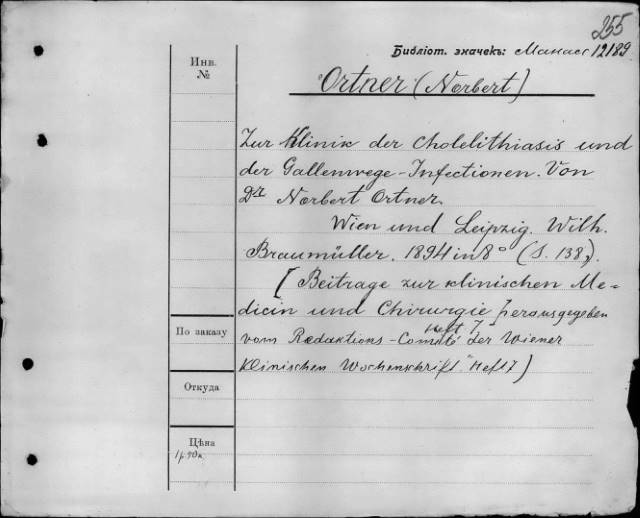 255
Библіот. значекъ: Манасс 12189.
Инв.
№
Ortner (Norbert)
Zur Klinik der Cholelithiasis und
der Gallenwege-Infectionen. Von
Dr Norbert Ortner.
Wien und Leipzig. Wilh.
Braumüller. 1894 in 8° (S. 138).
[Beitrage zur klinischen Me-
dicin und Chirurgie herausgegeben
Heft 7]
vom Redaktions-Comité der Wiener
klinischen Wochenschrift" Heft 7)
По заказу
Откуда
Цѣна
1р.90к.